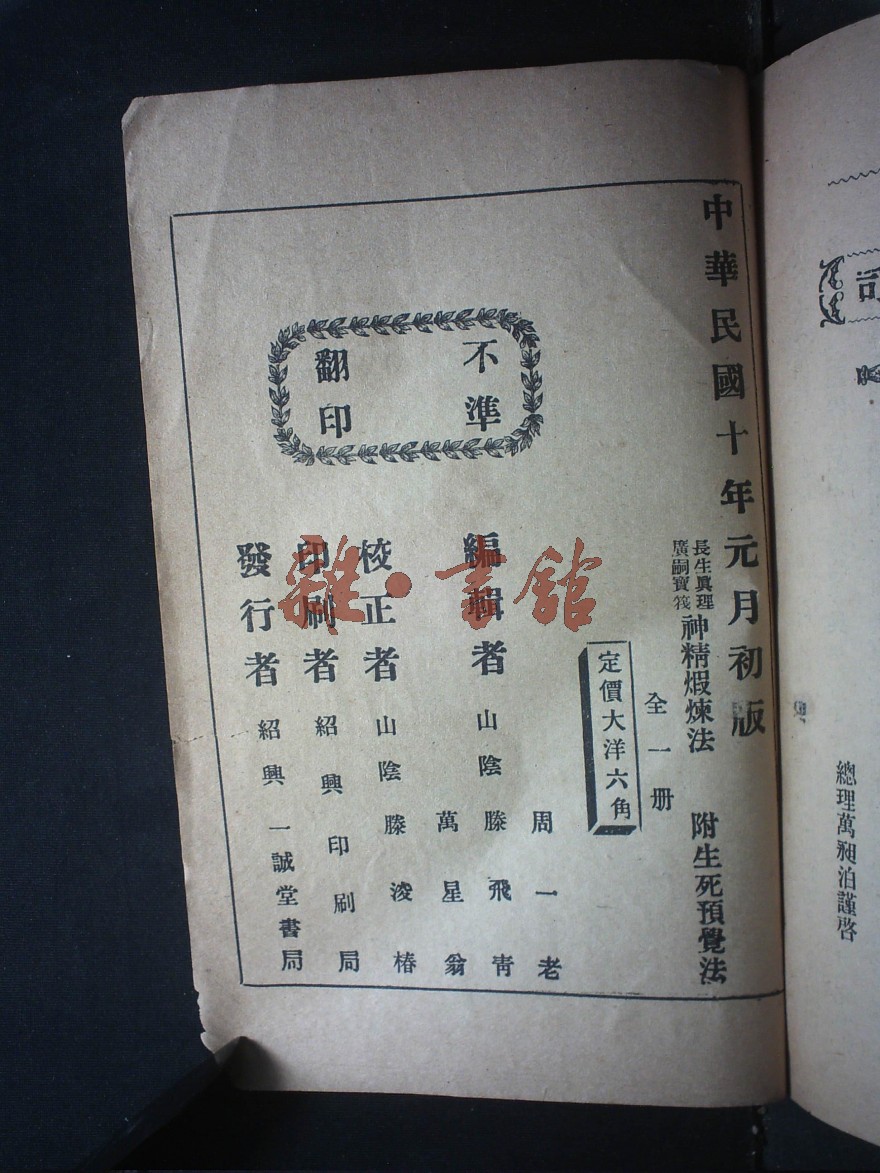 中華民國十年元月初版
長生眞理
廣嗣寶筏
神精煆煉法 附生死預覺法
全一册
定價大洋六角
不準
翻印
編輯者 山陰
周一老
滕飛靑
萬星翁
校正者 山陰 滕淩椿
印刷者 紹興印刷局
發行者 紹興一誠堂書局
雜·書館
司
總理萬昶泊謹啓